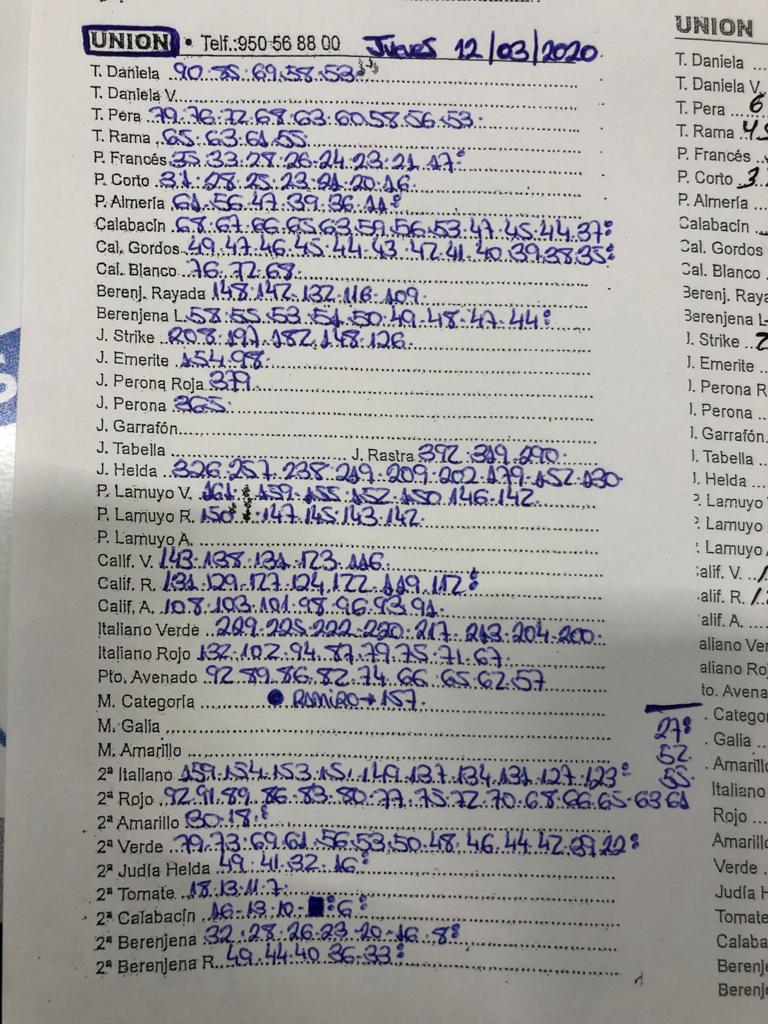 UNION • Telf.:950 56 88 00 Jueves 12/03/2020
T. Daniela 90.85.69.58.53
T. Daniela V.
T. Pera 79.76.72.68.63.60.58.56.53.
T. Rama 65.63.61.55
P. Francés 35.33.28.26.24.23.21.17:
P. Corto 31.28.25.23.21.20.16
P. Almería 61.56.47.39.36.11:
Calabacín 68.67.66.65.63.59.56.53.47.45.44.37:
Cal. Gordos 49.47.46.45.44.43.42.41.40.39.38.35:
Cal. Blanco 76.72.68.
Berenj. Rayada 148.142.132.116.109.
Berenjena L. 58.55.53.51.50.49.48.47.44:
J. Strike 208.197.182.148.126.
J. Emerite 154.98.
J. Perona Roja 379.
J. Perona 365.
J. Garrafón
J. Tabella J. Rastra 392.319.290.
J. Helda 326.257.238.219.209.202.179.152.130
P. Lamuyo V. 161.159.155.152.150.146.142.
P. Lamuyo R. 150.147.145.143.142.
P. Lamuyo A.
Calif. V. 143.138.131.123.116.
Calif. R. 131.129.127.124.122.119.112:
Calif. A. 108.103.101.98.96.93.91.
Italiano Verde 229.225.222.220.217.213.204.200.
Italiano Rojo 132.102.94.87.79.75.71.67.
Pto. Avenado 92.89.86.82.74.66.65.62.57
M. Categoría • RAMIRO→157.
M. Galia
M. Amarillo
2ª Italiano 159.154.153.151.149.137.134.131.127.123:
2ª Rojo 92.91.89.86.83.80.77.75.72.70.68.66.65.63 61
27:
52
55
2ª Amarillo 30.18:
2ª Verde 79.73.69.61.56.53.50.48.46.44.42.39.22:
2ª Judía Helda 49.41.32.16:
2ª Tomate 18.13.11.7.
2ª Calabacín 16-13-10-:6:
2ª Berenjena 32.28.26.23.20.16.8:
2ª Berenjena R. 49.44.40.36-33:
UNION
T. Daniela
T. Daniela V.
T. Pera 6
T. Rama
P. Francés
P. Corto 3.
P. Almería
Calabacín
Cal. Gordos
Cal. Blanco